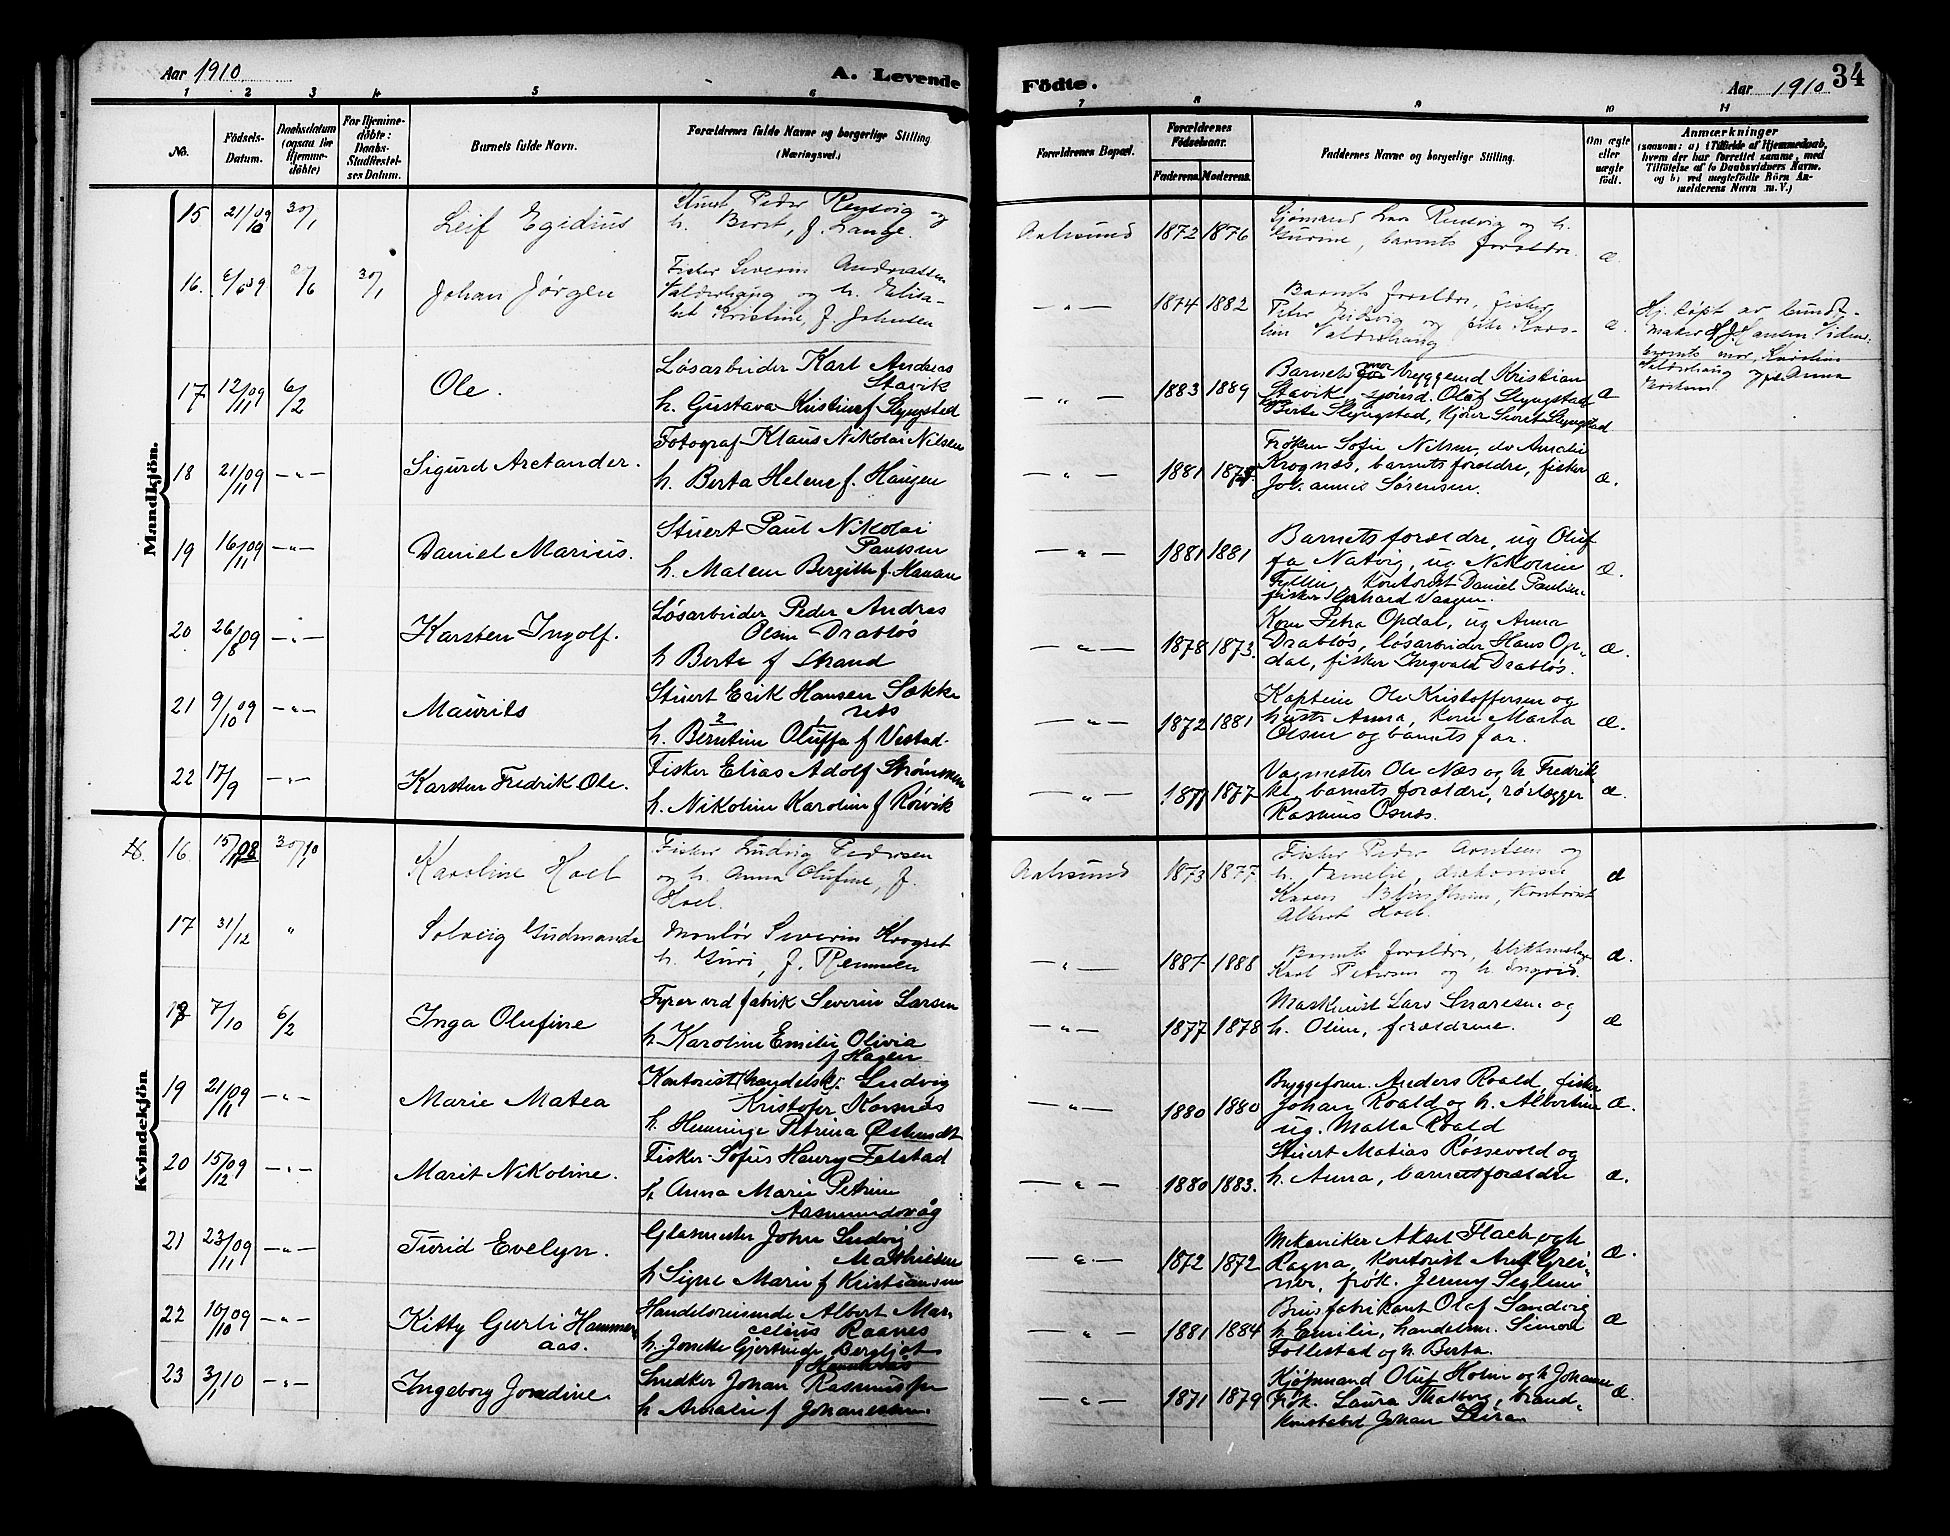 Aar 1910
A. Levende
Födte.
Aar 1910
34
1 2 3 4 5 6 7 8 9 10 11
No.
Födsels-
Datum.
Daabsdatum
(ogsaa for
Hjemme-
döbte)
For Hjemme-
döbte:
Daabs-
Stadfæstel-
ses Datum.
Barnets fulde Navn.
Forældrenes fulde Navne og borgerlige Stilling
(Næringsvei.)
Forældrenes Bopæl.
Forældrenes
Födselsaar.
Faderens. Moderens.
Faddernes Navne og borgerlige Stilling.
Om ægte
eller
uægte
födt.
Anmærkninger
(saasom: a) i Tilfælde af Hjemmedaab,
hvem der har forrettet samme, med
Tilföielse af to Daabsvidners Navne,
og b) ved uægtefödte Börn An-
melderens Navn m. V.)
Mandkjön.
15 21/10 09 30/1 Leif Egidius
Stuert Peder Rensvig og
h. Beret, f. Lange.
Aalesund 1872 1876
Sjømand Lars Rensvig og h.
Gurine, barnets forældre. æ
16. 6/6 09 30/1 Johan Jørgen
Fisker Severin Andreassen
Valderhaug og h. Elisa-
bet Kristine, f. Johnsen
— " — 1874 1882
Barnets forældre, fisker
Peter og
Valderhaug æ
Hj. døpt av bundt-
maker H J Hansen
barnets mor,
Valderhaug Anna
17 12/11 09 6/2 Ole.
Løsarbeider Karl Andreas
Stavik
h. Gustava Kristine f Slyngstad
— " — 1883 1889
Barnets mor, bryggemd Kristian
Stavik, sjømd. Oluf Slyngstad
Berte Slyngstad, Kjører Sivert Slyngstad æ
18 21/11 09 — " — Sigurd Arctander.
Fotograf Klaus Nikolai Nilsen
h. Berta Helene f. Haugen
— " — 1881
Frøken Sofie Nilsen, do Amalie
Krognæs, barnets forældre, fisker
Johannes Sørensen. æ.
19 16/11 09 — " — Daniel Marius.
Stuert Paul Nikolai
Paulsen
h. Malene Bergitte f. Hanan
— " — 1881 1881
Barnets forældre, ug Oluf-
fa Natvig, ug Nikoline
Fylling, kontorist Daniel Paulsen
fisker Gerhard Vaagen. æ.
20 26/8 09 — " — Karsten Ingolf.
Løsarbeider Peder Andreas
Olsen Drabløs
h Berte f Strand
— " — 1878 1873.
Kone Petra Opdal, ug Anna
Drabløs, løsarbeider Hans Op-
dal, fisker Ingvald Drabløs. æ.
21 9/10 09 — " — Maurits
Stuert Erik Hansen Løkke-
nes
h. Berntine Oluffa f Vestad.
— " — 1872 1881
Kaptein Ole Kristoffersen og
hustr Anna, kone Marta
Olsen og barnets far. æ.
22 17/9 — " — Karsten Fredrik Ole.
Fisker Elias Adolf Strømmen
h. Nikoline Karoline f Rørvik
— " — 1877 1877
Vagmester Ole Næs og h Fredrik-
ke, barnets forældre, rørlægger
Rasmus Osnæs. æ.
Kvindekjön
16 15/ 08 30/10 Karoline Hoel
Fisker Ludvig Pedersen
og h. Anna Olufine, f.
Hoel.
Aalesund 1873 1877
Fisker Peder Arntsen og
h. Amelie,
Karen Blindheim, kontorist
Albert Hoel. æ
17 31/12 " Solveig Gudmunda
Montør Severin Krogset
h. Guri, f. Remmen
— " — 1887 1888
Barnets forældre,
Karl Petersen og h Ingrid. æ.
18 7/10 6/2 Inga Olufine
Fyrer ved fabrik Severin Larsen
h Karoline Emilie Olivia
f Hagen
— " — 1877 1878
Maskinist Lars Snaresen og
h. Oline, forældrene. æ
19 21/11 09 — " — Marie Matea
Kontorist (handelsk). Ludvig
Kristofer Korsnæs
h. Henninge Petrina Østmedt
— " — 1880 1880
Byggeform. Anders Roald, fisker
Johan Roald og h. Albertine
ug. Malla Roald æ.
20 15/12 09 — " — Marit Nikoline.
Fisker Sofus Henry Falstad
h. Anna Marie Petrine
Aasmundsvåg
— " — 1880 1883.
Stuert Matias Røssevold og
h. Anna, barnets forældre æ.
21 23/11 09 — " — Turid Evelyn.
Glasmester John Ludvig
Mathiesen
h Signe Marie f Kristiansen
— " — 1872 1872
Mekaniker Aksel Flach og h
Ragna, kontorist Arne Grei-
ner, frøk. Jenny Seglem æ.
22 10/10 09 — " — Kitty Gurli Hammer-
aas.
Handelsreisende Albert Mar-
celius Raanes
h. Jonette Gjertrude Bergljot
f Hammeraas
— " — 1881 1884
Brusfabrikant Olaf Sandvig
h Emilie, handelsm. Simon
Follestad og h. Berta. æ
23 3/1 10 — " — Ingeborg Jondine
Snedker Johan Rasmussen
h Amalie f Johannesen.
— " — 1871 1879
Kjøpmand Oluf Holm og h Johanne
Frøk. Laura Thalberg, brand-
konstabel Johan Leira æ.